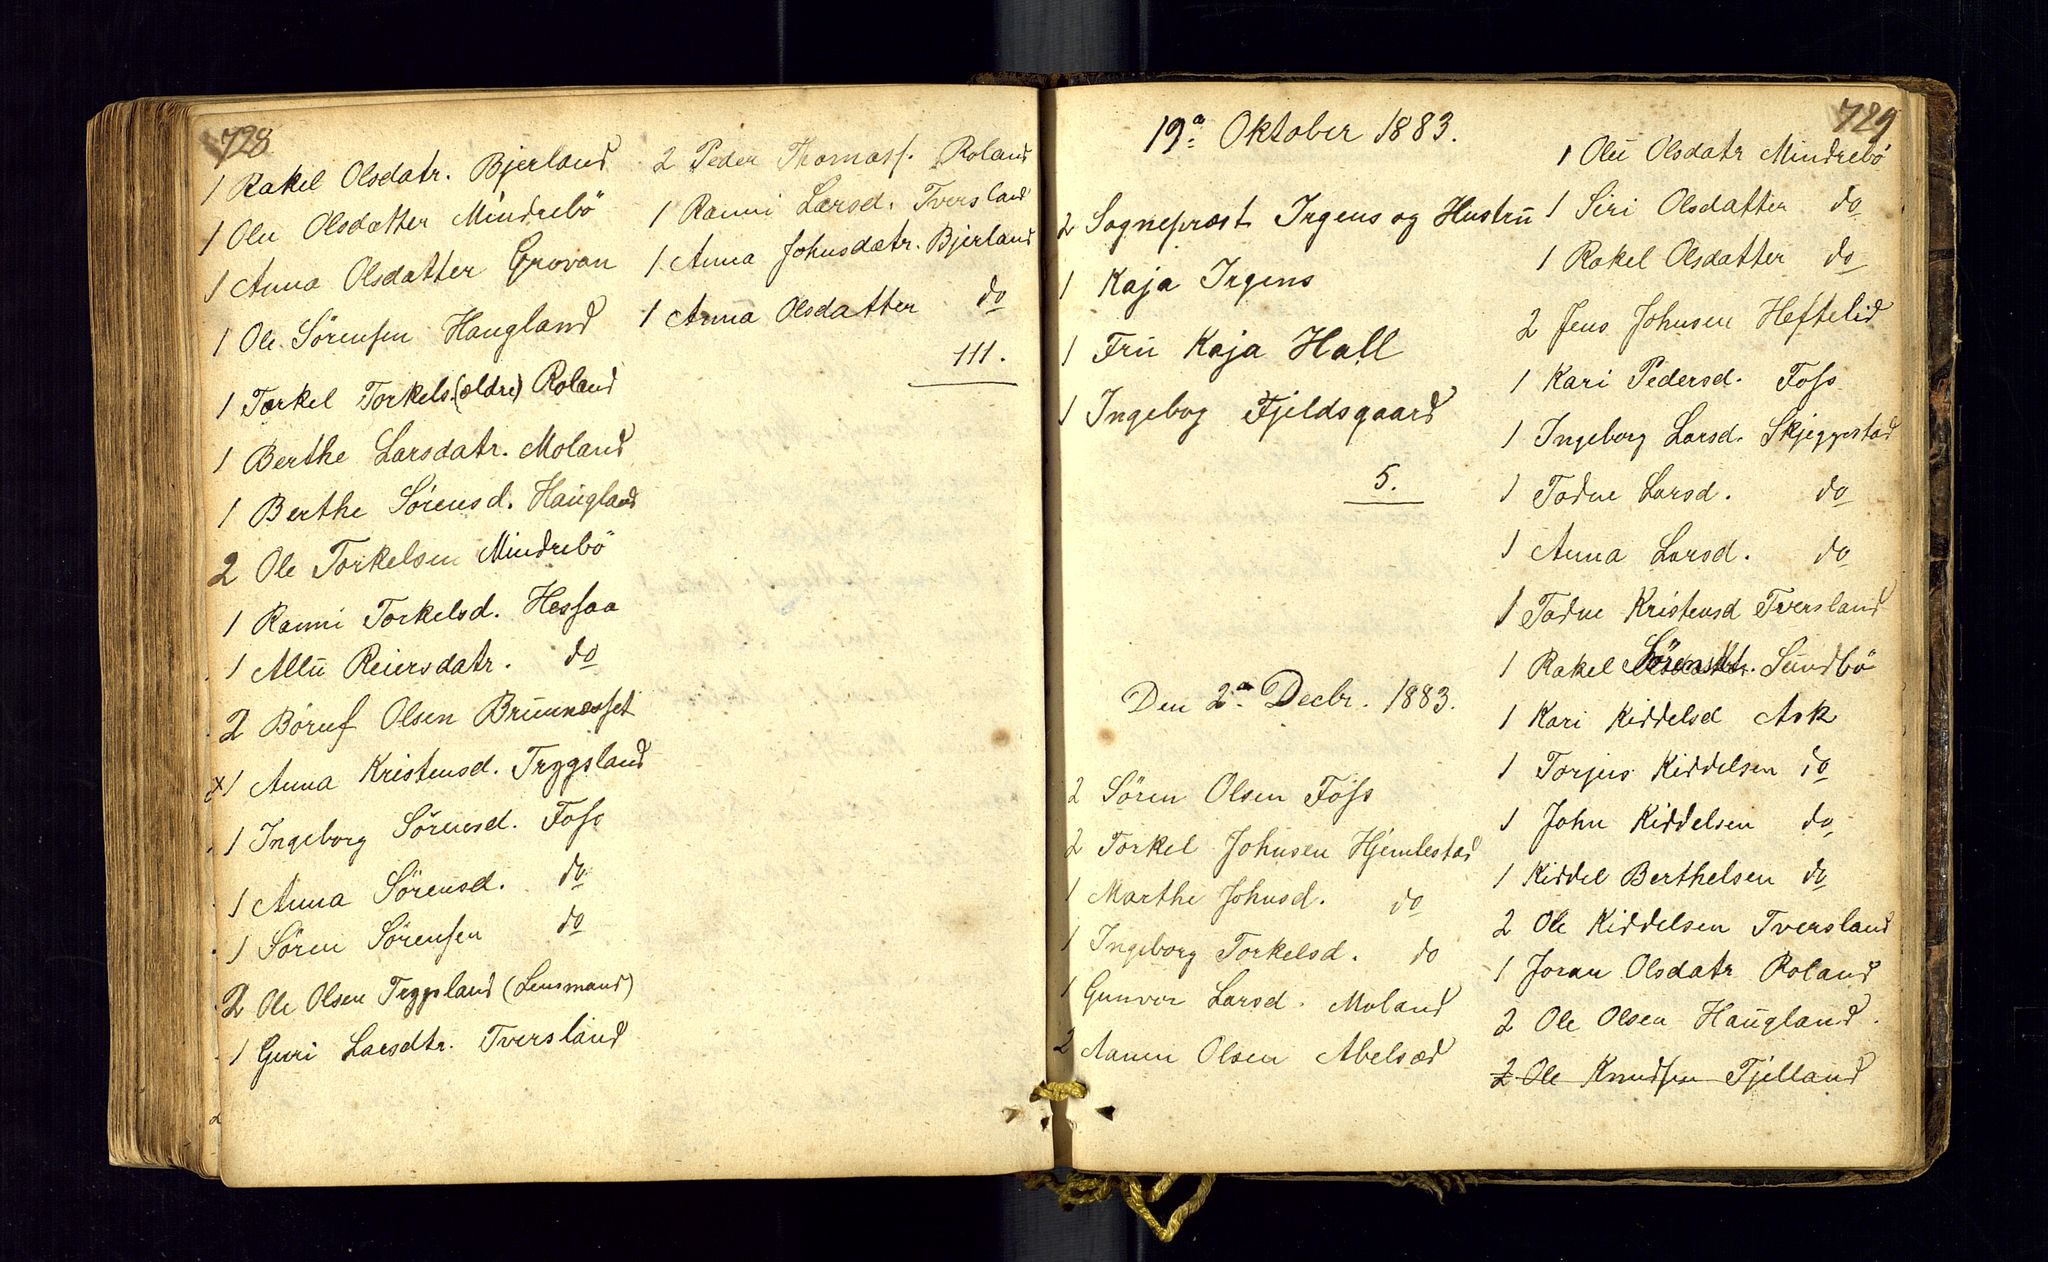 728
1 Rakel Olsdatr. Bjerland
1 Olu Olsdatter Mindrebö
1 Anna Olsdatter Grovan
1 Ole Sörensen Haugland
1 Torkel Torkels. (ældre) Roland
1 Berthe Larsdatr. Moland
1 Berthe Sörensd. Haugland
2 Ole Torkelsen Mindrebö
1 Ranni Torkelsd. Hessaa
1 Allu Reiersdatr. do
2 Böruf Olsen Brunnesset
x1 Anna Kristensd. Tryggsland
1 Ingeborg Sörensd. Foss
1 Anna Sörensd. do
1 Sören Sörensen do
2 Ole Olsen Tryggsland (Lensmand)
1 Guri Larsdtr. Tversland
2 Peder Thomass. Roland
1 Ranni Larsd. Tversland
1 Anna Johnsdatr. Bjerland
1 Anna Olsdatter do
111.
729
19a Oktober 1883.
2 Sognepræst Irgens og Hustru
1 Kaja Irgens
1 Fru Kaja Hall
1 Ingebog Fjeldsgaard
5.
Den 2a Decbr. 1883.
2 Sören Olsen Foss
2 Torkel Johnsen Hjemlestad
1 Marthe Johnsd. do
1 Ingeborg Torkelsd. do
1 Gunvor Larsd. Moland
2 Aanen Olsen Abelsæd
1 Olu Olsdatr Mindrebö
1 Siri Olsdatter do
1 Rakel Olsdatter do
2 Jens Johnsen Heftelid
1 Kari Pedersd. Foss
1 Ingeborg Larsd. Skjeggestad
1 Tadne Larsd. do
1 Anna Larsd. do
1 Tadne Kristensd Tversland
1 Rakel Sörensdtr. Sundbö
1 Kari Kiddelsd Ask
1 Torjus Kiddelsen do
1 John Kiddelsen do
1 Kiddel Berthelsen do
2 Ole Kiddelsen Tversland
1 Joran Olsdatr Roland
2 Ole Olsen Haugland.
2 Ole Knudsen Fjelland